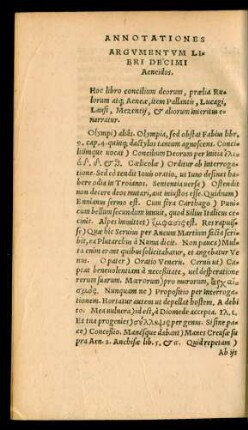 ANNOTATIONES
ARGVMENTVM LI-
BRI DECIMI
Aeneidos.
Hoc libro concilium deorum, prœlia Ru-
lorum atq; Aeneæ, item Pallantis, Lucagi,
Lausi, Mezentij, & aliorum interitus e-
narratur.
Olympi) aliâs. Olympia, sed obstat Fabius libro,
9. cap. 4. quinq; dactylos tantum agnoscens. Conci-
liumque uocat) Concilium Deorum per initia
Cælicolæ) Orditur ab Interroga-
tione. Sed eò tendit Iouis oratio, ut iam desinat ha-
bere odia in Troianos. Sententia uersa) Ostendit
non docere deos mutari, aut iniustos esse. Quisbium)
Ennianus sermo est. Cum fera Carthago) Puni-
cum bellum secundum innuit, quod Silius Italicus ce-
cinit. Alpes immittet) ἔμφασις est. Rex apius-
se) Quæ hîc Seruius per Ancum Martium
ea Plutarchus à Numa dicit. Non pauca) Mul-
ta enim erant quibus sollicitabatur, et angebatur Ve-
nus. O pater) Oratio Veneris. Cernis ut) Cap-
tat beneuolentiam à necessitate, uel desperatione
rerum suarum. Mœrorum) pro murorum,
Nunquam ne) Propositio per interroga-
tionem. Hortatur autem ut depellat hostem. A debi-
to. Mea uulnera) id est, à Diomede accepta.
Et tua progenies) σύλληψις per genus. Si sine pa-
ce) Concessio. Manesque dabant) Manes Creusæ su-
pra Aen. 2. Anchisæ lib. 5. & 6. Quid repetam)
Ab ijs